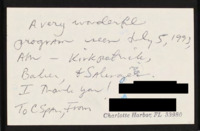 A very wonderful
program seen July 5, 1993
AM - Kirkpatrick,
Baker, &
I Thank you!
To C-Span, From
Charlotte Harbor, FL 33980